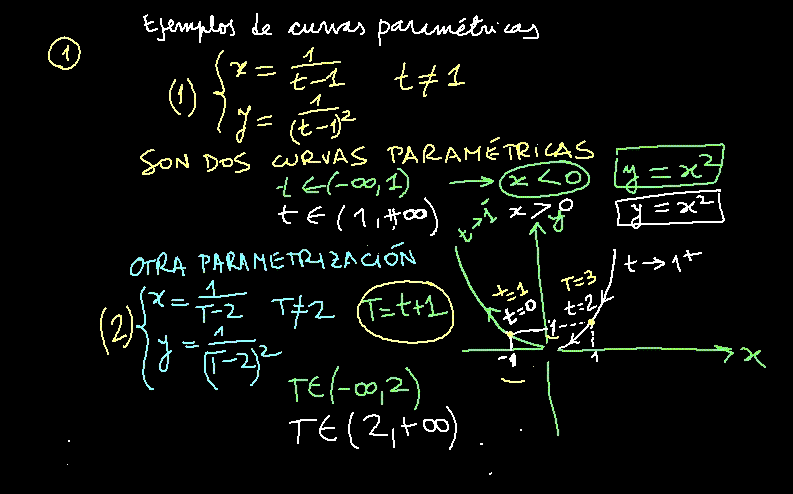 Ejemplos de curvas paramétricas
1
(1) { x = 1/(t-1)   t ≠ 1
y = 1/(t-1)²
SON DOS CURVAS PARAMÉTRICAS
t ∈ (-∞, 1) → x < 0   y = x²
t ∈ (1, +∞)   x > 0   y = x²
y
t → 1⁺
OTRA PARAMETRIZACIÓN
(2) { x = 1/(T-2)   T ≠ 2   T = t+1
y = 1/(T-2)²
t=1   T=3
t=0   t=2
1
-1   1   x
T ∈ (-∞, 2)
T ∈ (2, +∞)